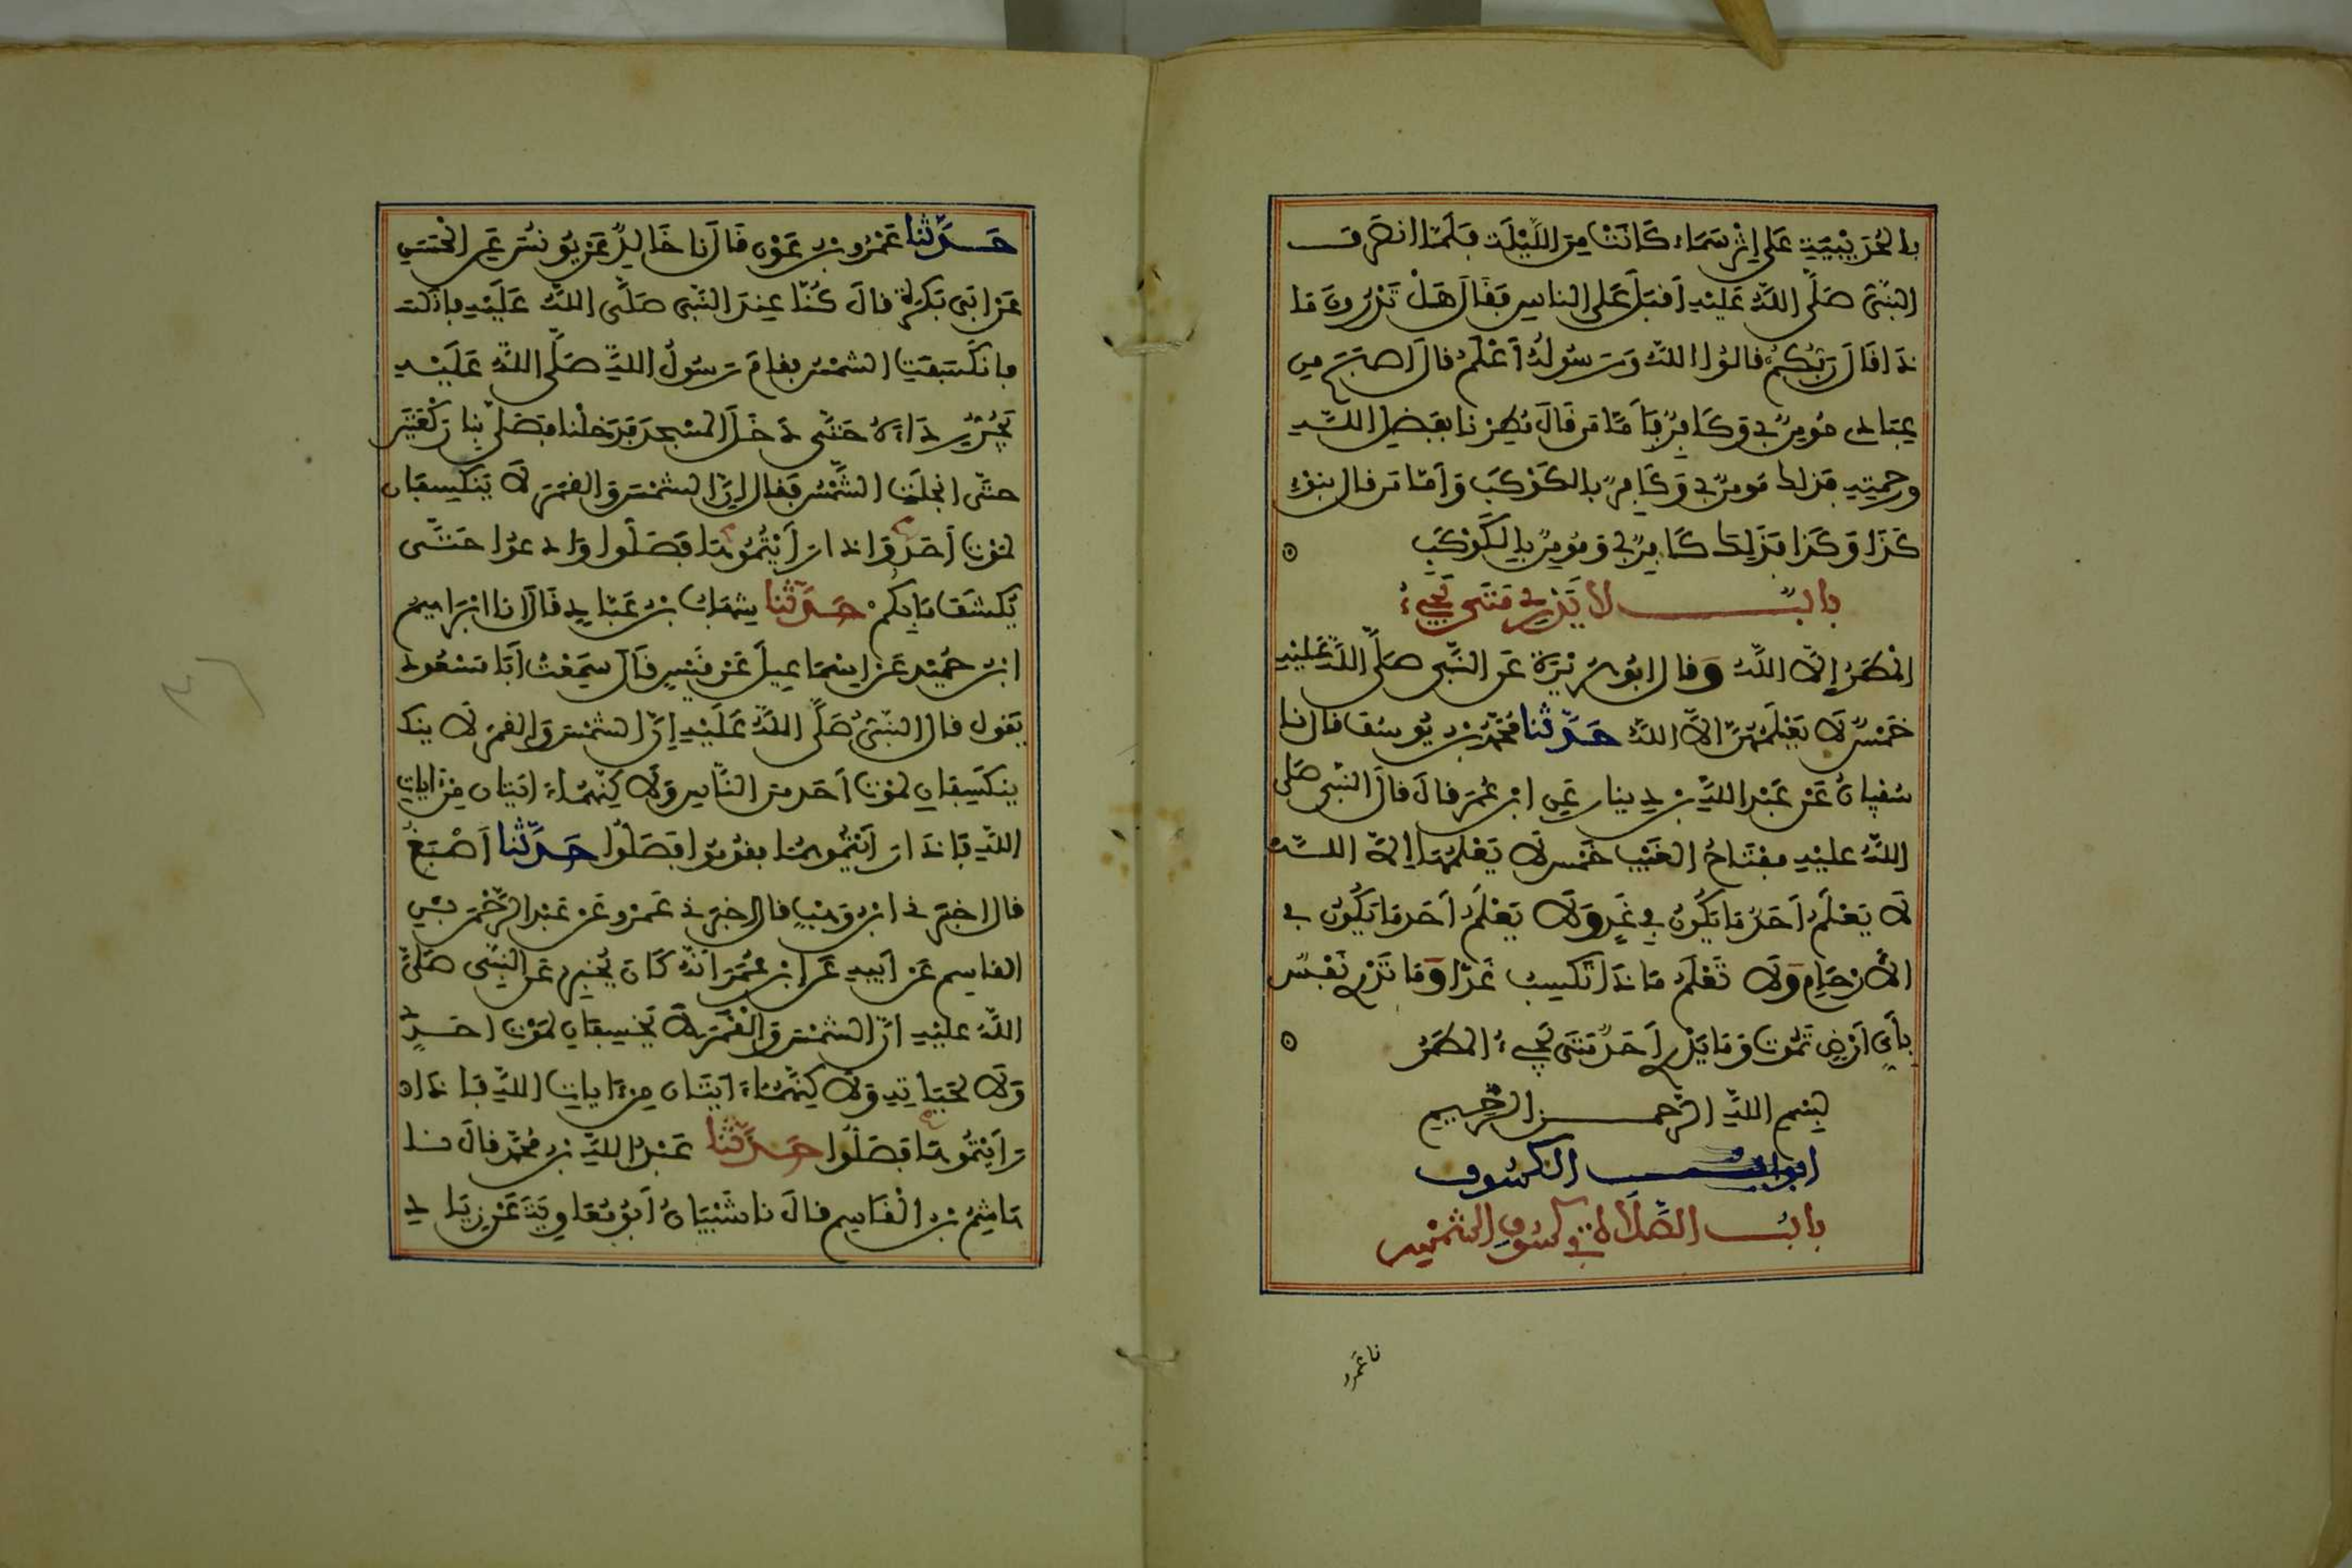 بالحُدَيْبِيَةِ عَلى إِثْرِ سَمَاءٍ كَانَتْ مِنَ اللَّيْلَةِ فَلَمَّا انصَرَفَ
النَّبِىُّ صَلَّى اللَّهُ عَلَيْهِ أَقْبَلَ عَلى الناسِ فَقَالَ هَلْ تَدْرُونَ مَا
ذَا قَالَ رَبُّكُمْ قالُوا اللَّهُ وَرَسُولُهُ أَعْلَمُ قَالَ أَصْبَحَ مِن
عِبَادِى مُومِنٌ بى وَكَافِرٌ فَأَمَّا مَن قَالَ مُطِرْنَا بِفَضْلِ اللَّهِ
ورحمتِهِ فَذَلِكَ مُومِنٌ بى وَكَافِرٌ بِالكَوْكَبِ وَأَمَّا مَن قال بِنَوْءِ
كَذَا وَكَذَا فَذَلِكَ كَافِرٌ بى وَمُومِنٌ بِالكَوْكَبِ
بابٌ لا يَدْرِى مَتَى يَجِيءُ
المَطَرُ إِلاَّ اللَّهُ وَقال ابُو هُرَيْرَةَ عَنِ النَّبِى صَلَّى اللَّهُ عَلَيْهِ
خَمْسٌ لاَ يَعْلَمُهُنَّ إِلاَّ اللَّهُ حَدَّثَنا مُحَمَّدُ بْنُ يُوسُفَ قال نا
سُفْيَانُ عَنْ عَبْدِ اللَّهِ بْنِ دِينارٍ عَنِ ابْنِ عُمَرَ قالَ قالَ النَّبِى صَلَّى
اللَّهُ عليْهِ مِفْتَاحُ الغَيْبِ خَمْس لاَ يَعْلَمُهَا إِلاَّ اللَّهُ
لاَ يَعْلَمُ أَحَدٌ مَا يَكُونُ فِى غَدٍ وَلاَ يَعْلَمُ أَحَد مَا يَكُونُ فى
الأَرْحَامِ وَلاَ تَعْلَمُ مَاذَا تَكْسِبُ غَدًا وَمَا تَدْرِى نَفْسٌ
بِأَىِّ أَرْضٍ تَمُوتُ وَمَا يَدْرِى أَحَدٌ مَتَى يَجِىءُ المَطَرُ
بِسْمِ اللَّهِ الرَّحمنِ الرَّحِيمِ
ابوابُ الكسُوفِ
بابُ الصَّلاَةِ فى كسُوفِ الشمْسِ
نا عَمرو
حَدَّثَنا عَمْرُو بْنُ عَوْنٍ قَالَ نا خَالِدٌ عَنْ يُونُسَ عَنِ الحَسَنِ
عَنْ أَبِى بَكْرَةَ قالَ كُنَّا عِندَ النَّبِى صَلَّى اللَّهُ عَلَيْهِ
فانكَسَفَتِ الشمْسُ فقامَ رَسُولُ اللَّهِ صَلَّى اللَّهُ عَلَيْهِ
يَجُرُّ رِدَاءَهُ حَتَّى دَخَلَ المسْجِدَ فَدَخلْنا فَصَلَّى بِنا رَكْعَتَيْنِ
حتَّى انجلَتِ الشَّمْسُ فَقَال إِنَّ الشمْسَ وَالقمَرَ لاَ يَنكَسِفَانِ
لمَوْتِ أَحَدٍ وَإِذا رَأَيْتُمُوهُمَا فَصَلُّوا وَادعوا حَتَّى
يُكْشَفَ مَا بِكُمْ حَدَّثَنا شِهَابُ بْنُ عَبَّادٍ قَالَ نا ابْرَاهِيمُ
ابْنُ حُمَيْدٍ عَنْ إِسْمَاعِيلَ عَنْ قَيْسٍ قَالَ سَمِعْتُ أَبَا مَسْعُودٍ
يَقول قال النَّبِىُّ صَلَّى اللَّهُ عَلَيْهِ إِنَّ الشمْسَ وَالقمَرَ لاَ ينك
ينكَسِفَانِ لمَوْتِ أَحَدٍ مِنَ النَّاسِ وَلاَكِنَّهُمَا ءَايَتَانِ مِنْ ءَايَاتِ
اللَّهِ فَإِذَا رَأَيْتُمُوهُمَا فقُومُوا فَصَلُّوا حَدَّثَنا أَصْبَغُ
قال اخبَرَنى ابْنُ وَهْبٍ قال اخبَرَنى عَمْرٌو عَنْ عَبْدِ الرَّحْمَنِ بْنِ
القاسِمِ عَنْ أَبِيهِ عَنِ ابْنِ عُمَرَ أَنَّهُ كَانَ يُخْبِرُ عَنِ النَّبِى صَلَّى
اللَّهُ عليْهِ أنَّ الشمْسَ وَالْقَمَرَ لاَ يَخْسِفَانِ لمَوْتِ أَحَدٍ
وَلاَ لحَيَاتِهِ وَلاَكِنَّهُمَا ءَايَتَانِ مِنْ ءَايَاتِ اللَّهِ فَإِذَا
رَأَيْتُمُوهَا فَصَلُّوا حَدَّثَنا عَبْدُ اللَّهِ بْنُ مُحَمَّدٍ قالَ نا
هَاشِمُ بْنُ الْقَاسِمِ قالَ نا شَيْبَانُ أَبُو مُعَاوِيَةَ عَنْ زِيَادِ